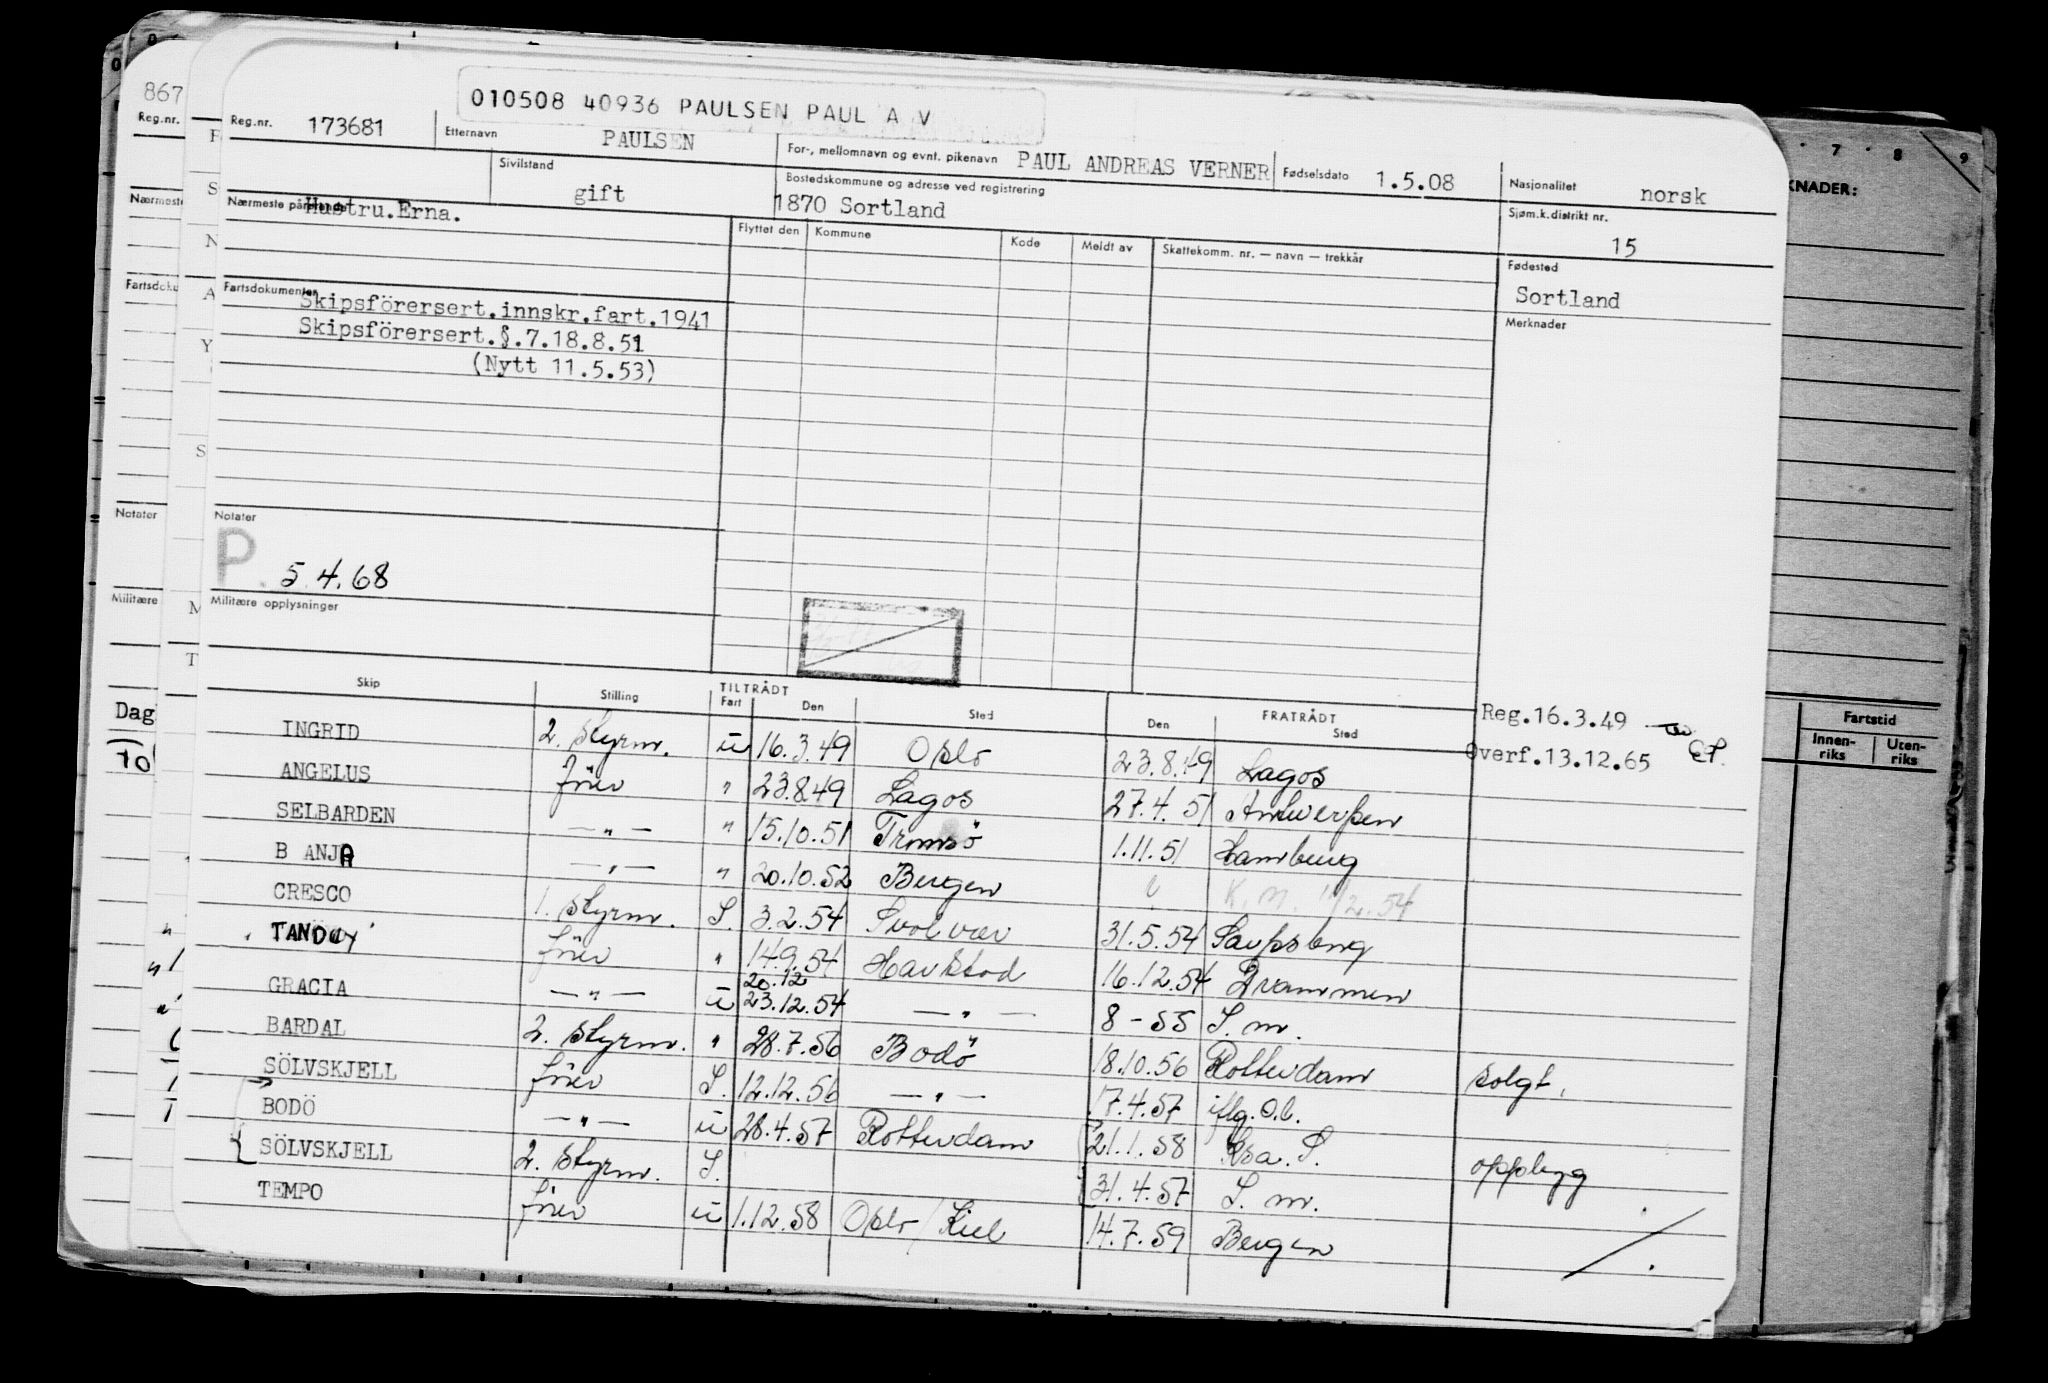 010508 40936 PAULSEN PAUL A V
867
Reg.nr.
Reg.nr. 173681 Etternavn PAULSEN For-, mellomnavn og evnt. pikenavn PAUL ANDREAS VERNER Fødselsdato 1.5.08 Nasjonalitet norsk
Sivilstand gift Bostedskommune og adresse ved registrering 1870 Sortland Sjøm.k.distrikt nr. 15
Nærmeste pårørende Hustru.Erna.
Flyttet den Kommune Kode Meldt av Skattekomm. nr. — navn — trekkår
Fødested
Sortland
Merknader
Fartsdokumenter Skipsförersert.innskr.fart.1941
Skipsförersert.§.7.18.8.51
(Nytt 11.5.53)
Notater
P. 5.4.68
Militære opplysninger
Skip Stilling TILTRÅDT Fart Den Sted FRATRÅDT Den Sted
Reg.16.3.49
Overf.13.12.65
INGRID 2. styrm. u 16.3.49 Oslo 23.8.49 Lagos
ANGELUS förer " 23.8.49 Lagos 27.4.51 Antwerpen
SELBARDEN — " — " 15.10.51 Tromsö 1.11.51 Hamburg
B ANJA — " — " 20.10.52 Bergen K.M. 11/2.54
CRESCO 1. styrm. S. 3.2.54 Svolvær 31.5.54 Sarpsborg
förer " 14.9.54 Harstad 16.12.54 Drammen
GRACIA — " — u 20.12 23.12.54 — " — 8-55 S.m.
BARDAL 2. styrm. " 28.7.56 Bodö 18.10.56 Rotterdam solgt.
SÖLVSKJELL förer S. 12.12.56 — " — 17.4.57 iflg. O.l.
BODÖ — " — u 28.4.57 Rotterdam 21.1.58 Kra. S. oppbygg
SÖLVSKJELL 2. styrm. S. 31.4.57 S.m.
TEMPO förer u 1.12.58 Oslo/Kiel 14.7.59 Bergen
Notater
Militære
Dag
7 8 9
KNADER:
Fartstid
Innenriks Utenriks